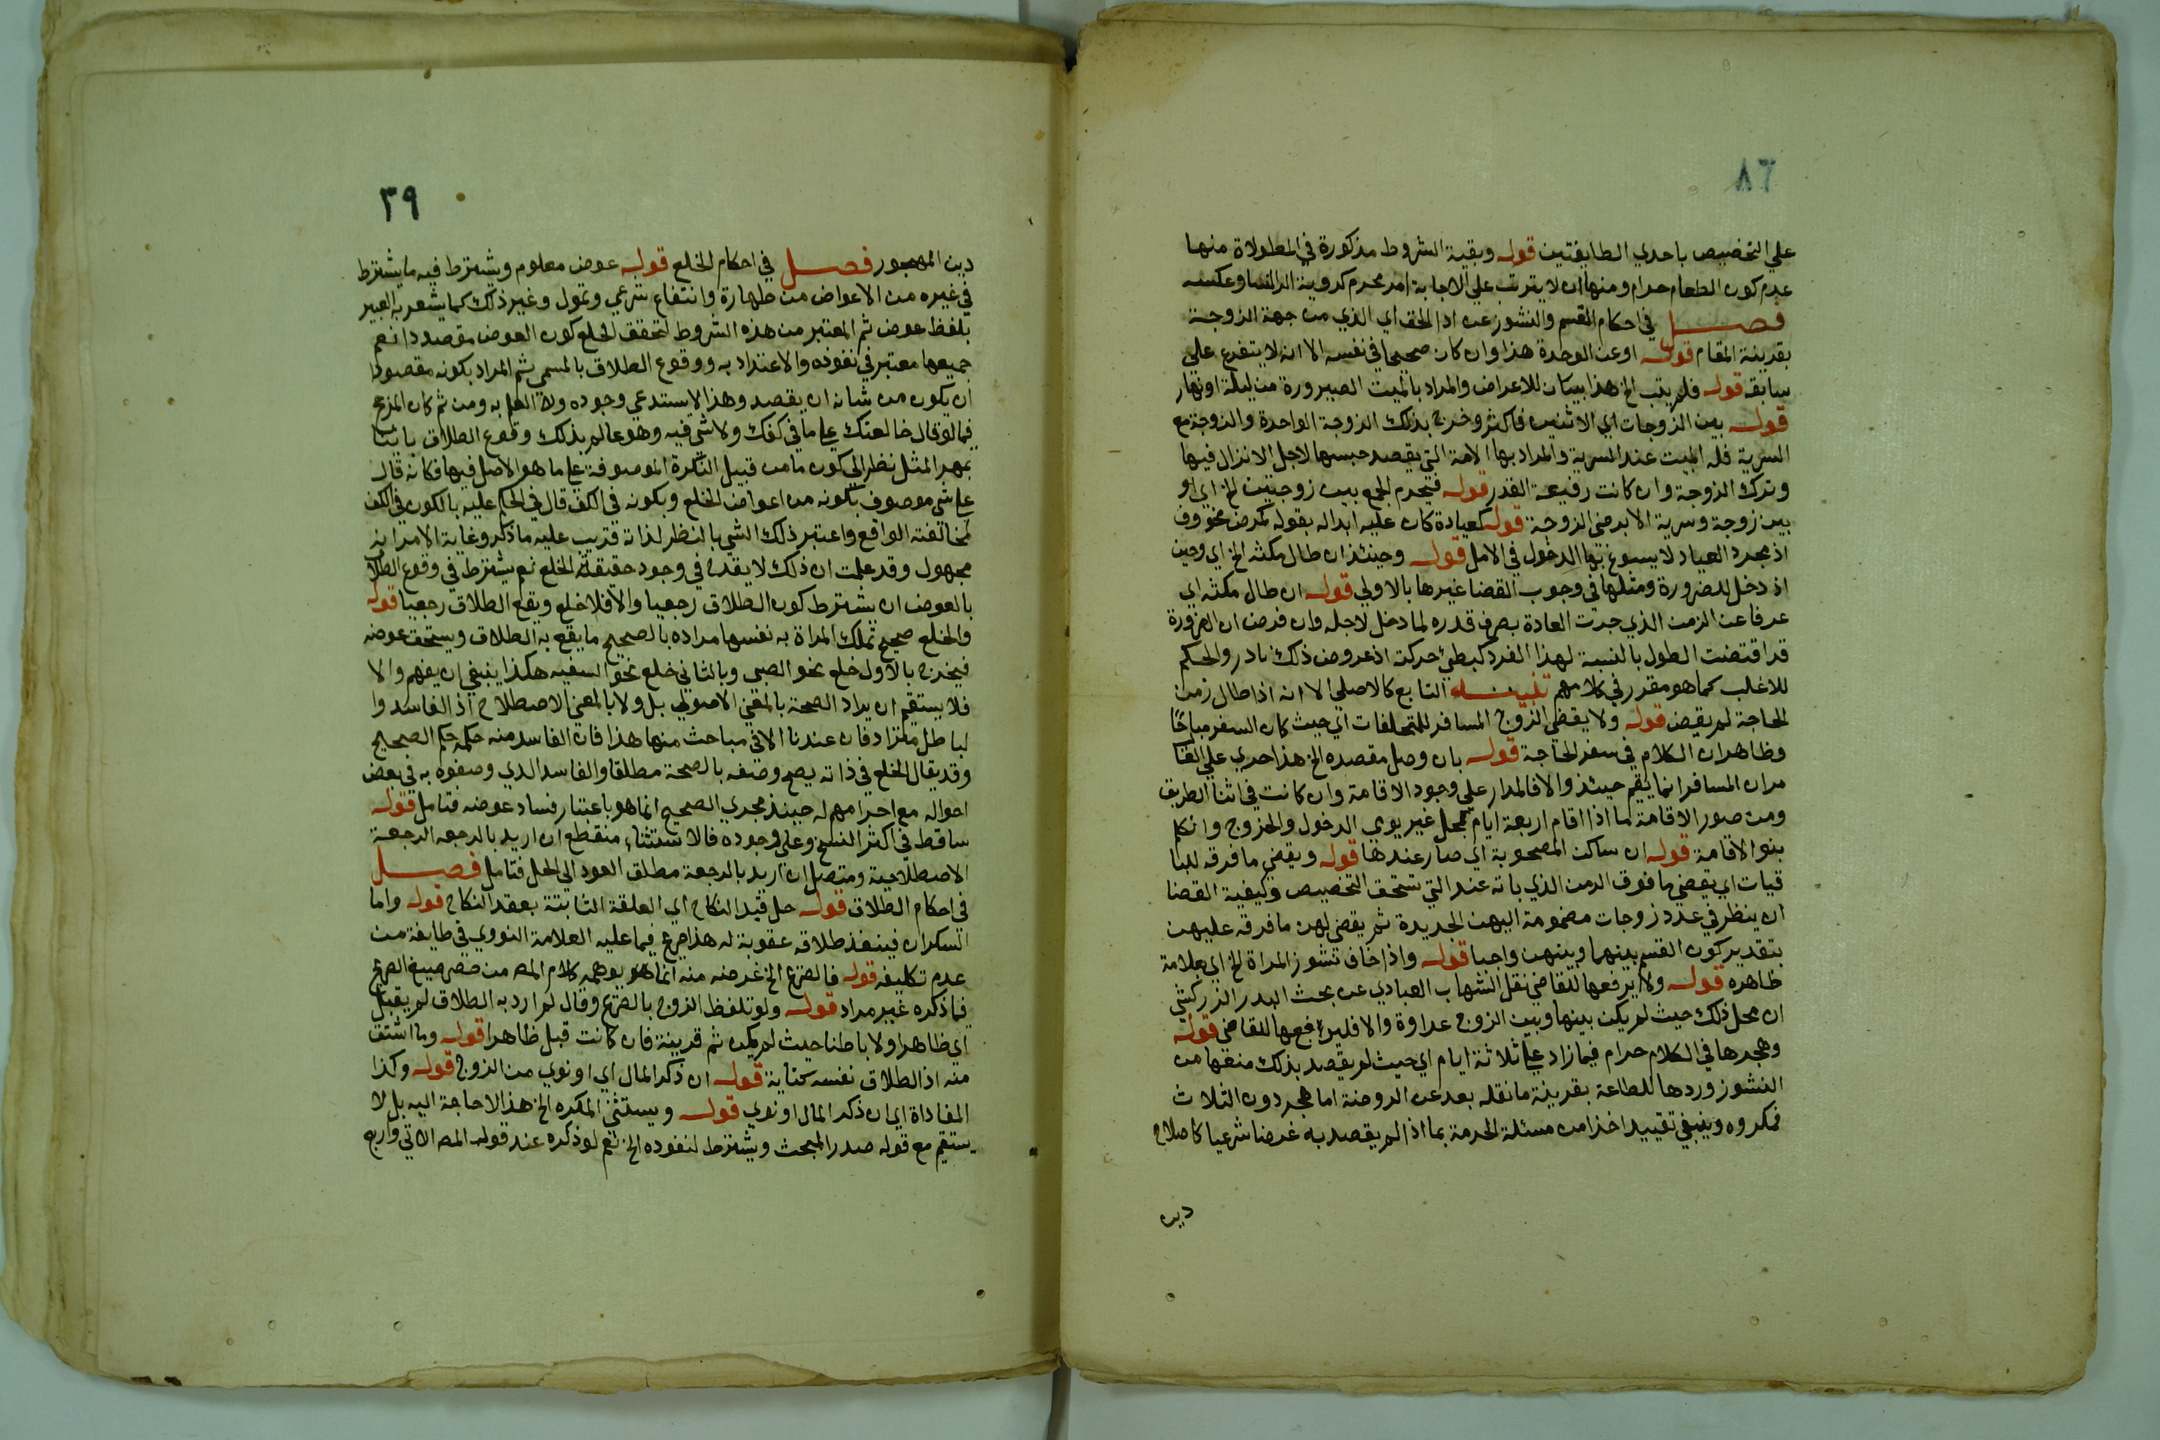 ٨٦
علي التخصيص باحدي الطايفتين قوله وبقية الشروط مذكورة في المطولاة منها
عدم كون الطعام حرام ومنها ان لا يترتب علي الاجابة امر محرم كروية الرجال النسا وعكسه
فصل في احكام القسم والنشوز عن اد الحق اي الذي من جهة الزوجة
بقرينة المقام قوله او عن الوحدة هذا وان كان صحيحا في نفسه الا انه لا يتفرع علي
سابقه قوله فلم يتب الخ هذا بيان للاعراض والمراد بالمبيت الصيرورة من ليلة او نهار
قوله بين الزوجات اي الاثنين فاكثر وخرج بذلك الزوجة الواحدة والزوجة مع
السرية فله المبيت عند السرية والمراد بها الامة التي يقصد حبسها لاجل الانزال فيها
وترك الزوجة وان كانت رفيعة القدر قوله فيحرم الجمع بين زوجتين الخ اي او
بين زوجة وسرية الا برضي الزوجة قوله كعيادة كان عليه ابداله بقوله كمرض مخوف
اذ مجرد العياد لا يسوغ بها الدخول في الاصل قوله وحينئذ ان طال مكثه الخ اي وحين
اذ دخل للضرورة ومثلها في وجوب القضا غيرها بالاولي قوله ان طال مكثه اي
عرفا عن الزمن الذي جرت العادة بصرف قدره لما دخل لاجله وان فرض ان الضرورة
قد اقتضت الطول بالنسبة لهذا الفرد كبطئ حركت اذ عروض ذلك نادر والحكم
للاغلب كما هو مقرر في كلامهم تنبيه التابع كالاصلي الا انه اذا طال زمن
الحاجة لم يقض قوله ولا يقضي الزوج المسافر للمتخلفات اي حيث كان السفر مباحا
وظاهر ان الكلام في سفر الحاجة قوله بان وصل مقصده الخ هذا جري علي الغا
مر ان المسافر انما يقيم حينئذ والا فالمدار علي وجود الاقامة وان كانت في اثنا الطريق
ومن صور الاقامة ما اذا اقام اربعة ايام بمحل غير يومي الدخول والخروج وان لم
ينو الاقامة قوله ان ساكن المصحوبة اي صار عندها قوله ويقضي ما فرقه للبا
قيات اي يقضي ما فوق الزمن الذي باته عند التي تستحق التخصيص وكيفية القضا
ان ينظر في عدد زوجات مضمومة اليهن الجديدة ثم يقضي لهن ما فرقه عليهن
بتقدير كون القسم بينهما وبينهن واجبا قوله واذا خاف نشوز المراة الخ اي بعلامة
ظاهره قوله ولا يرفعها للقاضي نقل الشهاب العبادي عن بحث البدر الزركشي
ان محل ذلك حيث لم يكن بينها وبين الزوج عداوة والا فليرفعها للقاضي قوله
وهجرها في الكلام حرام فيما زاد علي ثلاثة ايام اي حيث لم يقصد بذلك منعها من
النشوز وردها للطاعة بقرينة ما نقله بعد عن الروضة اما هجر دون الثلاث
فمكروه وينبغي تقييد اخذا من مسئلة الحرمة بما اذا لم يقصد به غرضا شرعيا كاصلاح
دين
٣٩
دين المهجور فصل في احكام الخلع قوله عوض معلوم ويشترط فيه ما يشترط
في غيره من الاعواض من طهارة وانتفاع شرعي وتمول وغير ذلك كما يشعر به التعبير
بلفظ عوض ثم المعتبر من هذه الشروط لتحقق الخلع كون العوض مقصودا نعم
جميعها معتبر في نفوذه والاعتداد به ووقوع الطلاق بالمسمي ثم المراد بكونه مقصودا
ان يكون من شانه ان يقصد وهذا لا يستدعي وجوده ولا العلم به ومن ثم كان المرجح
فيما لو قال خالعتك علي ما في كفك ولا شي فيه وهو عالم بذلك وقوع الطلاق باينا
بمهر المثل نظرا الي كون ما من قبيل النكرة الموصوفة علي ما هو الاصل فيها فكانه قال
علي شي موصوف بكونه من اعواض الخلع وبكونه في الكف قال في الحكم عليه بالكون في الكف
لمخالفته الواقع واعتبر ذلك الشي بالنظر لذاته فترتب عليه ما ذكر وغاية الامر انه
مجهول وقد علمت ان ذلك لا يقدح في وجود حقيقة الخلع نعم يشترط في وقوع الطلاق
بالعوض ان يشترط كون الطلاق رجعيا والا فلا خلع ويقع الطلاق رجعيا قوله
والخلع صحيح تملك المراة به نفسها مراده بالصحيح ما يقع به الطلاق ويستحق عوضه
فيخرج بالاول خلع نحو الصبي وبالثاني خلع نحو السفيه هكذا ينبغي ان يفهم والا
فلا يستقيم ان يراد الصحة بالمعني الاصولي بل ولا بالمعني الاصطلاح اذ الفاسد وا
لباطل مترادفان عندنا الا في مباحث منها هذا فان الفاسد منه حكمه حكم الصحيح
وقد يقال الخلع في ذاته يصح وصفه بالصحة مطلقا والفاسد الذي وصفوه به في بعض
احواله مع اجرامهم له حينئذ مجري الصحيح انما هو باعتبار فساد عوضه فتامل قوله
ساقط في اكثر النسخ وعلي وجوده فالاستثناء منقطع ان اريد بالرجعه الرجعة
الاصطلاحية ومتصل ان اريد بالرجعة مطلق العود الي الحل فتامل فصل
في احكام الطلاق قوله حل قيد النكاح اي العلقة الثابتة بعقد النكاح قوله واما
السكران فينفذ طلاقه عقوبة له هذا صريح فيما عليه العلامة النووي في طايفة من
عدم تكليفه قوله فالصريح الخ غرضه منه انما هو يوهمه كلام المص من حصر صيغ الصريح
فيما ذكره غير مراد قوله ولو تلفظ الزوج بالصريح وقال لم ارد به الطلاق لم يقبل
اي ظاهرا ولا باطنا حيث لم يكن ثم قرينة فان كانت قبل ظاهرا قوله وما اشتق
منه اذ الطلاق نفسه كناية قوله ان ذكر المال اي او نوي من الزوج قوله وكذا
المفاداة اي ان ذكر المال او نوي قوله ويستثني المكره الخ هذا لا حاجة اليه بل لا
يستقيم مع قوله صدر المبحث ويشترط لنفوذه الخ نعم لو ذكره عند قوله المص الاتي واربع